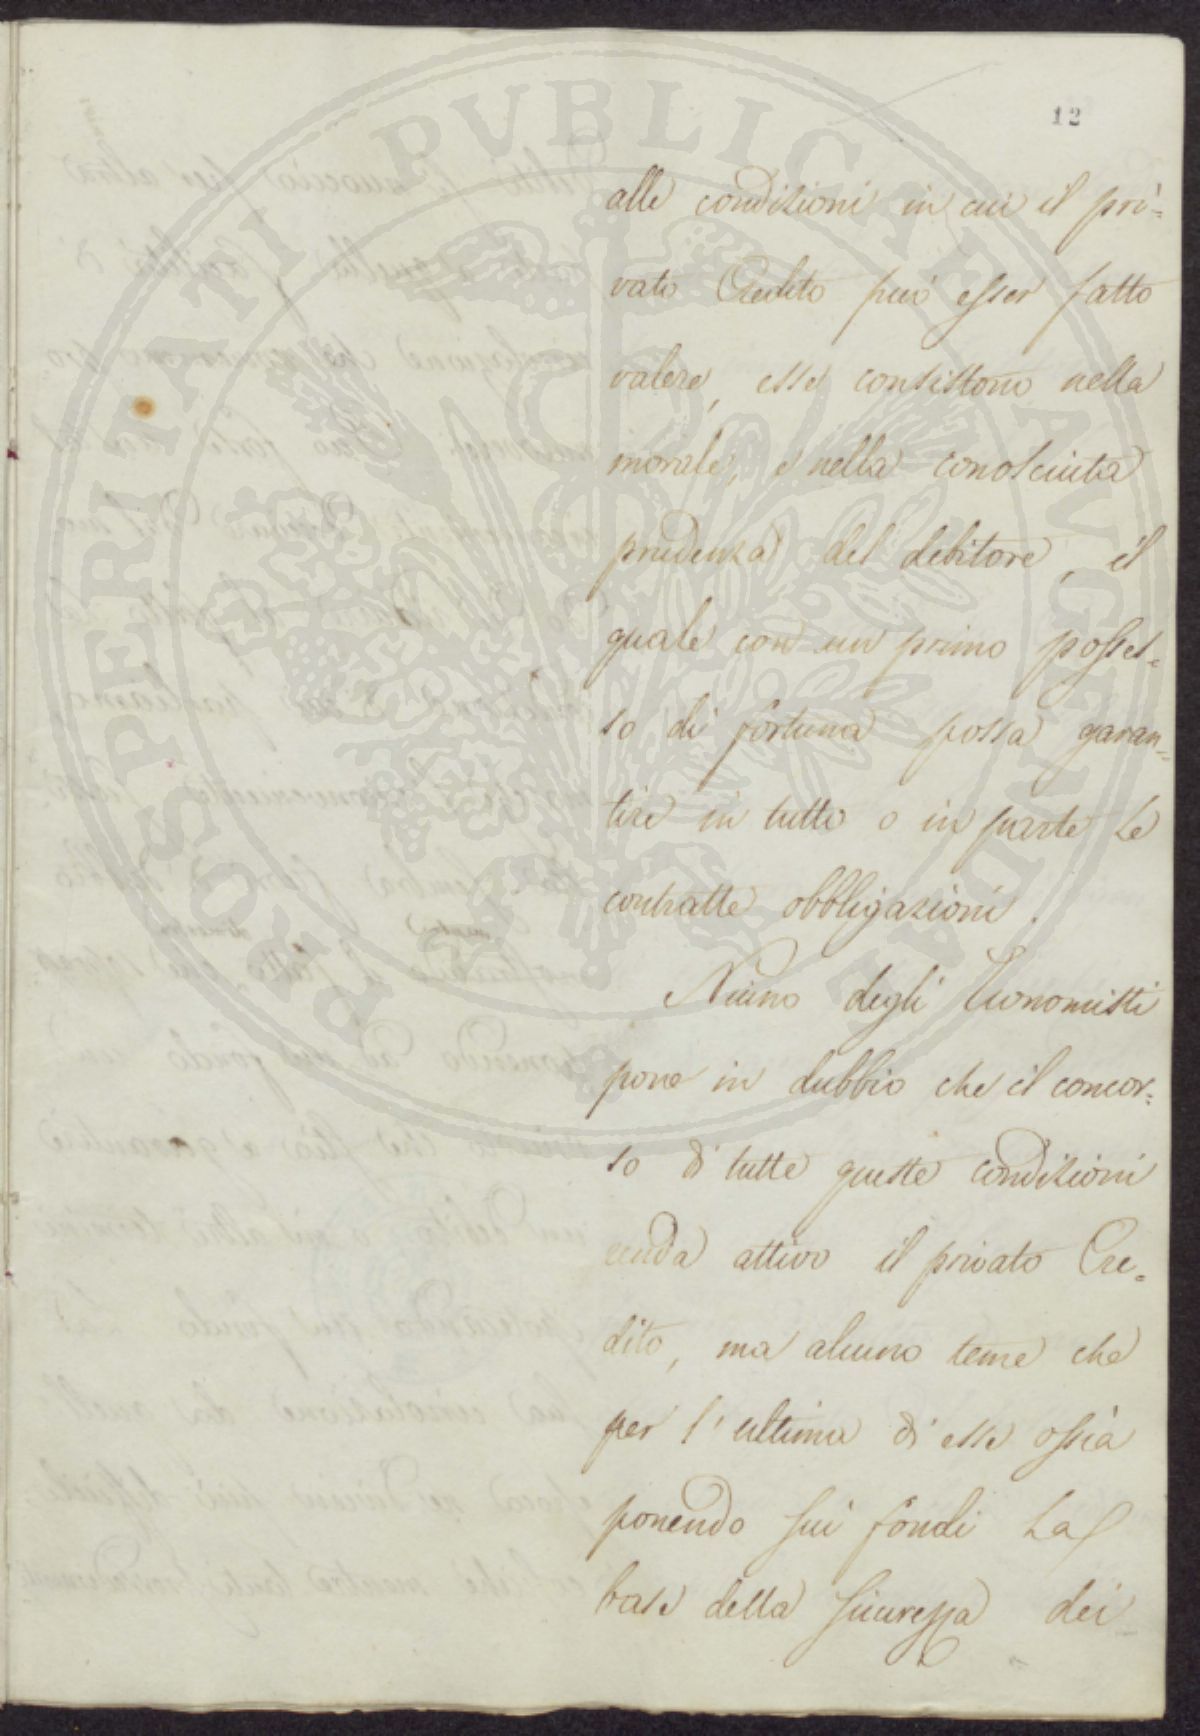 12
alle condizioni in cui il pri=
vato Credito può esser fatto
valere, esse consistono nella
morale, e nella conosciuta
prudenza del debitore, il
quale con un primo posses=
so di fortuna possa garan=
tire in tutto o in parte le
contratte obbligazioni.
Niuno degli Economisti
pone in dubbio che il concor=
so di tutte queste condizioni
renda attivo il privato Cre=
dito, ma alcuno teme che
per l'ultima di esse ossia
ponendo sui fondi la
base della sicurezza dei
PROSPERITATI PVBLICAE AVGENDAE